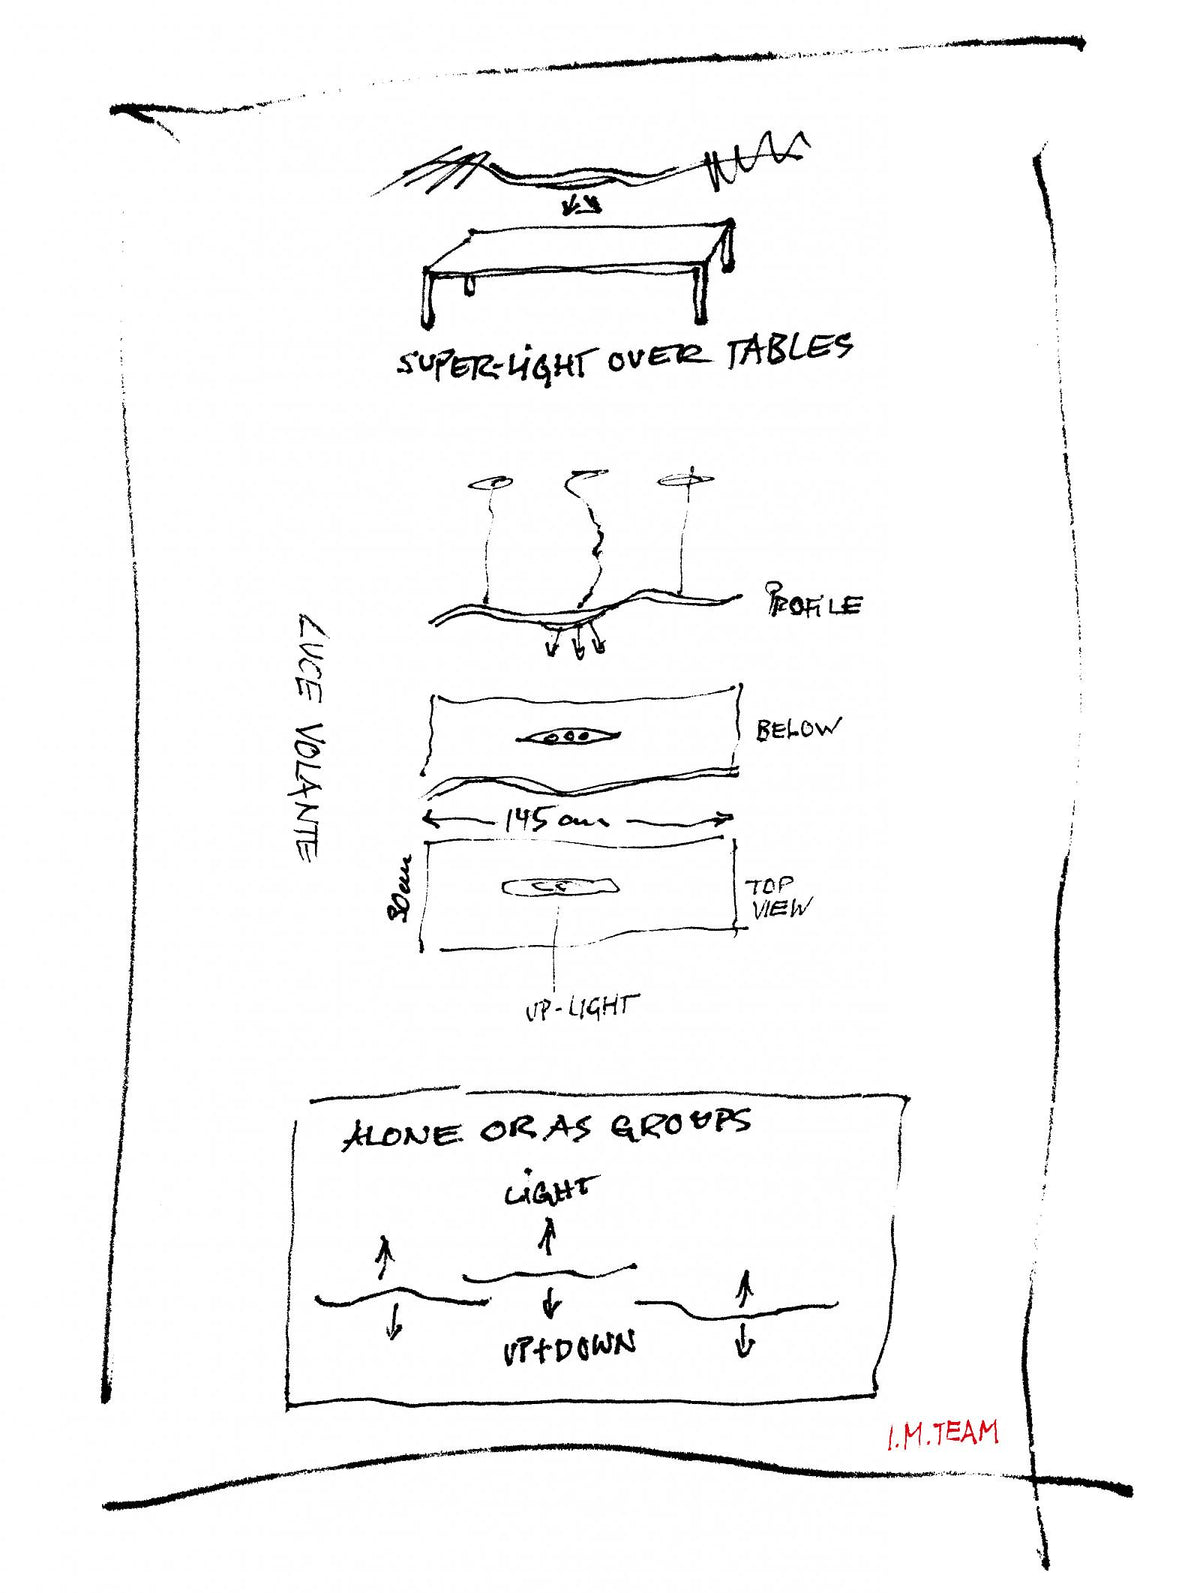 SUPER-LIGHT OVER TABLES
PROFILE
LUCE VOLANTE
BELOW
145 cm
30cm
TOP
VIEW
UP-LIGHT
ALONE OR AS GROUPS
LIGHT
UP+DOWN
I.M.TEAM